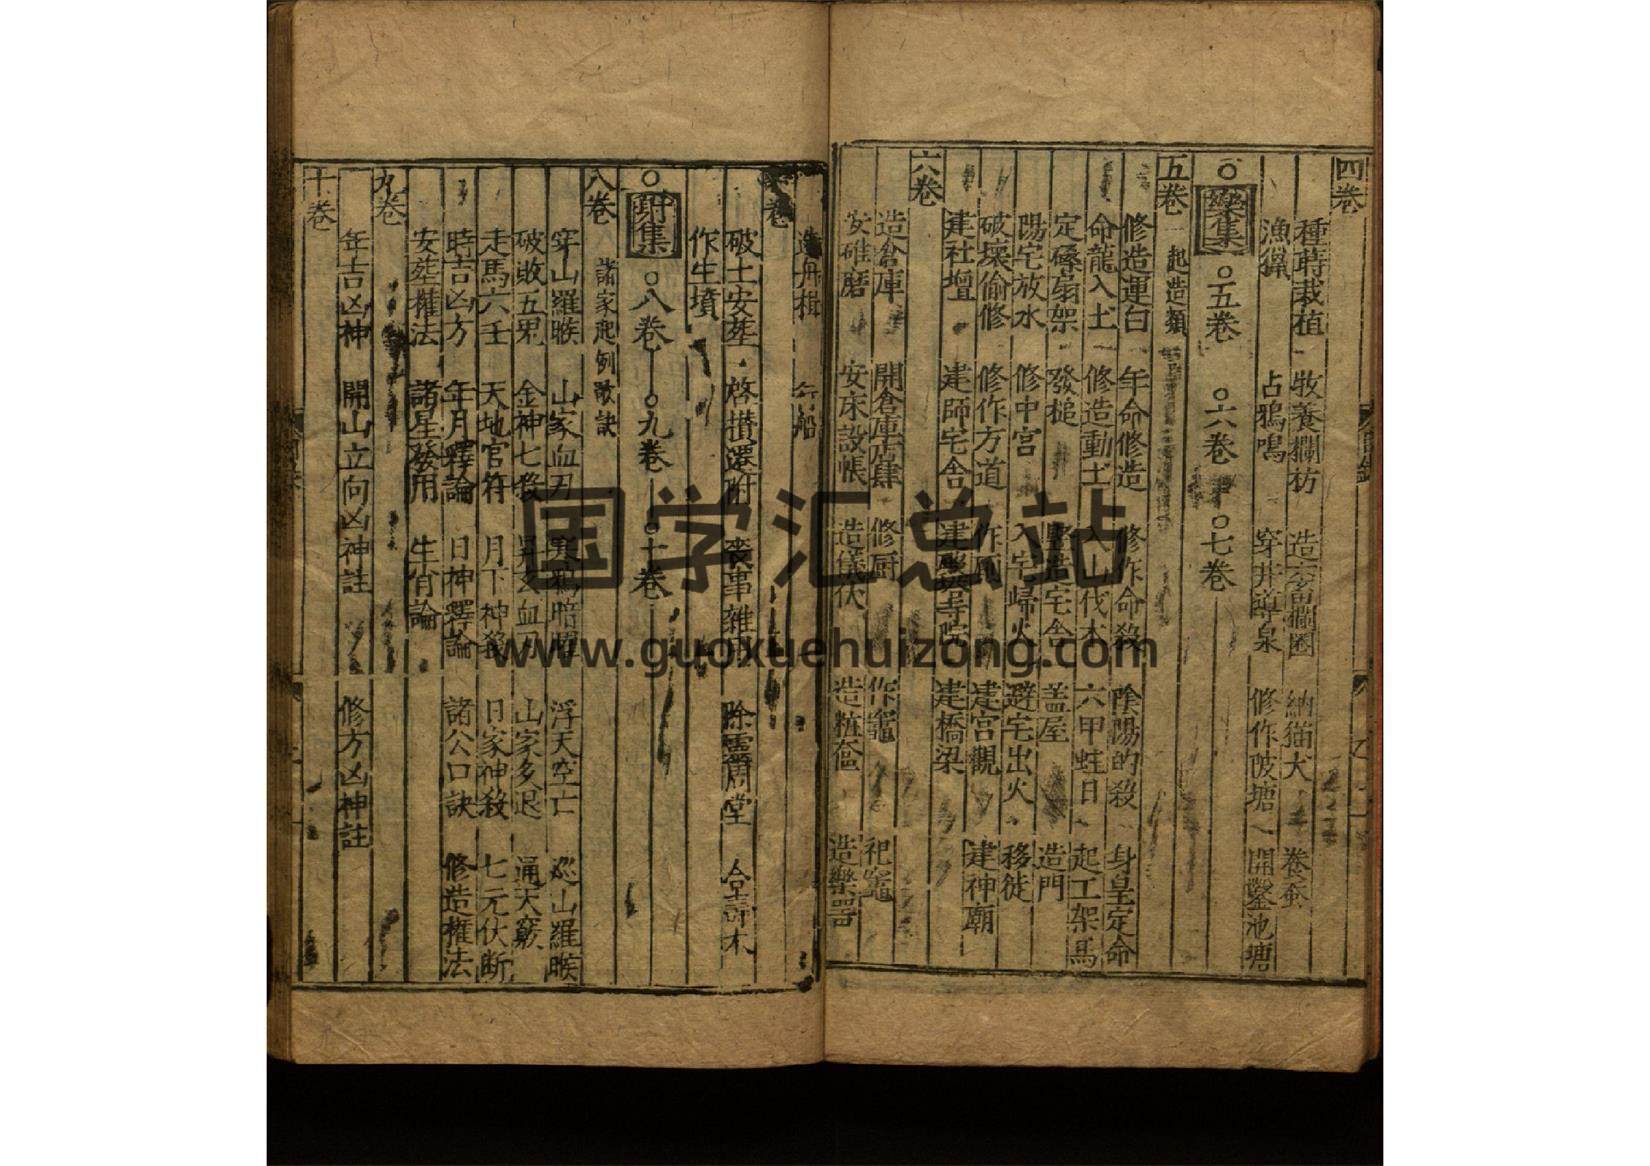 四卷
種蒔栽植 牧養攔枋 造六畜攔圈 納猫犬 養蚕
漁獵 占鴉鳴 穿井導泉 修作陂塘 開鑿池塘
○樂集 ○五卷 ○六卷 ○七卷
五卷 起造類
修造運白 年命修造 修作命殺 陰陽的殺 身皇定命
命龍入土 修造動土 入山伐木 六甲蛙日 起工架馬
定磉扇架 發槌 竪造宅舍 盖屋 造門
陽宅放水 修中宮 入宅歸火 避宅出火 移徙
破壞偷修 修作方道 作廁 建宮觀 建神廟
建社壇 建師宅舍 建寺院 建橋梁
六卷
造倉庫 開倉庫店肆 修厨 作竈 祀竈
安碓磨 安床設帳 造儀仗 造粧奩 造樂器
卷
造舟楫 船
破土安葬 啓攢遷附 喪事雜用 除靈周堂 合壽木
作生墳
○射集 ○八卷 ○九卷 ○十卷
八卷 諸家起例歌訣
穿山羅睺 山家血刃 暗曜 浮天空亡 巡山羅睺
破敗五鬼 金神七殺 昇玄血刃 山家多退 通天竅
走馬六壬 天地官符 月下神殺 日家神殺 七元伏断
時吉凶方 年月釋論 日神釋論 諸公口訣 修造權法
安葬權法 諸星發用 生肖論
九卷
年吉凶神 開山立向凶神註 修方凶神註
十卷
国学汇总站
www.guoxuehuizong.com